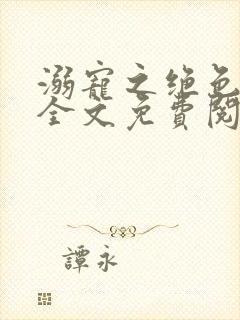 溺寵之绝色
全文免費閱
譚永